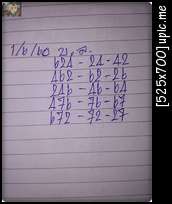 1/6/60 บ,ล.
624 - 24 - 42
462 - 62 - 26
246 - 46 - 64
476 - 76 - 67
672 - 72 - 27
[525x700] upic.me